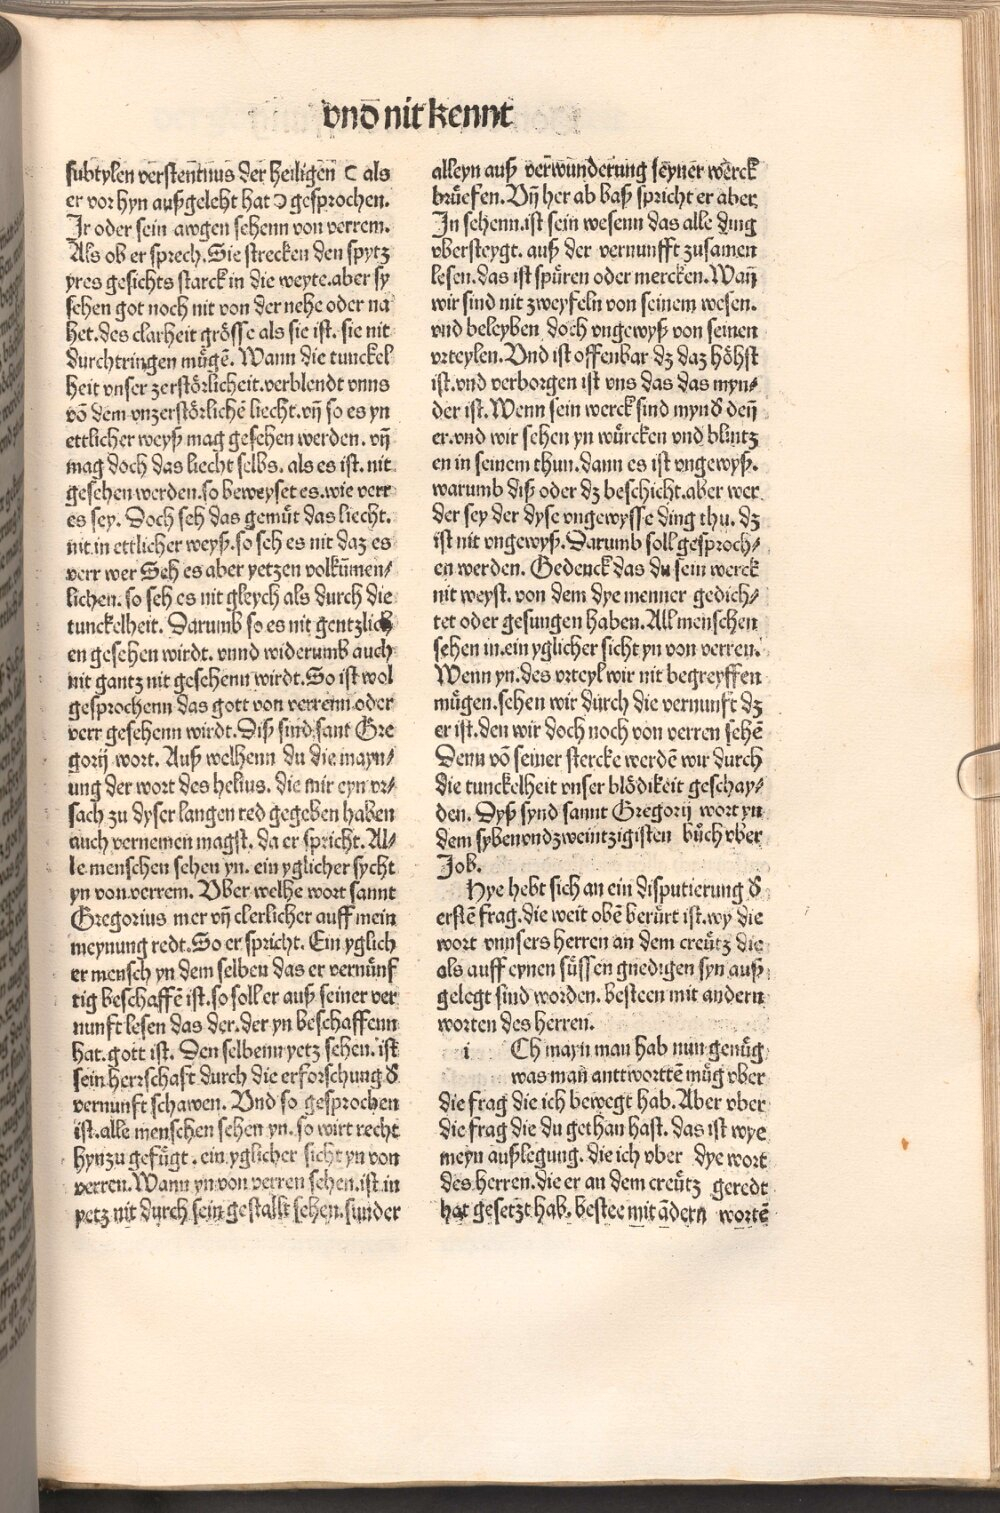 vnd nit kennt
subtylen verstentnus der heiligen ⊂ als
er vor hyn außgeleht hat ⊃ gesprochen.
Ir oder sein awgen sehenn von verrem.
Als ob er sprech. Sie strecken den spytz
yres gesichts starck in die weyte. aber sy
sehen got noch nit von der nehe oder na
het. des clarheit grösse als sie ist. sie nit
durchtringen mügē. Wann die tunckel
heit vnser zerstörlicheit. verblendt vnns
vō dem vnzerstörlichē liecht. vn̄ so es yn
ettlicher weyß mag gesehen werden. vn̄
mag doch das liecht selbs. als es ist. nit
gesehen werden. so beweyset es. wie verr
es sey. Doch seh das gemüt das liecht.
nit in ettlicher weyß. so seh es nit daz es
verr wer Seh es aber yetzen volkūmen/
lichen. so seh es nit gleych als durch die
tunckelheit. Darumb so es nit gentzlich
en gesehen wirdt. vnnd widerumb auch
nit gantz nit gesehenn wirdt. So ist wol
gesprochenn das gott von verrenn oder
verr gesehenn wirdt. Diß sind sant Gre
gorij wort. Auß welhenn du die mayn/
ung der wort des helius. die mir eyn vr/
sach zu dyser langen red gegeben haben
auch vernemen magst. da er spricht. Al/
le menschen sehen yn. ein yglicher sycht
yn von verrem. Vber welhe wort sannt
Gregorius mer vn̄ clerlicher auff mein
meynung redt. So er spricht. Ein yglich
er mensch yn dem selben das er vernünf
tig beschaffē ist. so soll er auß seiner ver
nunft lesen das der. der yn beschaffenn
hat. gott ist. Den selbenn yetz sehen. ist
sein herrschaft durch die erforschung d̄
vernunft schawen. Vnd so gesprochen
ist. alle menschen sehen yn. so wirt recht
hynzu gefügt. ein yglicher sicht yn von
verren. Wann yn von verren sehen. ist in
yetz nit durch sein gestallt sehen. sunder
alleyn auß verwunderung seyner werck
brüefen. Vn̄ her ab baß spricht er aber.
In sehenn. ist sein wesenn das alle ding
vbersteygt. auß der vernunfft zusamen
lesen. das ist spüren oder mercken. Wan̄
wir sind nit zweyfeln von seinem wesen.
vnd beleyben doch vngewyß von seinen
vrteylen. Vnd ist offenbar dz daz höhst
ist. vnd verborgen ist vns das das myn/
der ist. Wenn sein werck sind mynd̄ den̄
er. vnd wir sehen yn würcken vnd blintz
en in seinem thun. dann es ist vngewyß.
warumb diß oder dz beschicht. aber wer
der sey der dyse vngewysse ding thu. dz
ist nit vngewyß. Darumb soll gesproch/
en werden. Gedenck das du sein werck
nit weyst. von dem dye menner gedich/
tet oder gesungen haben. All menschen
sehen in. ein yglicher sicht yn von verren.
Wenn yn. des vrteyl wir nit begreyffen
mügen. sehen wir durch die vernunft dz
er ist. den wir doch noch von verren sehē
Denn vō seiner stercke werdē wir durch
die tunckelheit vnser blödikeit geschay/
den. Dyß synd sannt Gregorij wort yn
dem sybenvndzweintzigisten büch vber
Job.
Hye hebt sich an ein disputierung d̄
erstē frag. die weit obē berürt ist. wy die
wort vnnsers herren an dem creütz die
als auff eynen süssen gnedigen syn auß
gelegt sind worden. besteen mit andern
worten des herren.
i Ch mayn man hab nun genüg
was man̄ anttworttē müg vber
die frag die ich bewegt hab. Aber vber
die frag die du gethan hast. das ist wye
meyn außlegung. die ich vber dye wort
des herren. die er an dem creütz geredt
hat gesetzt hab. bestee mit ādern wortē